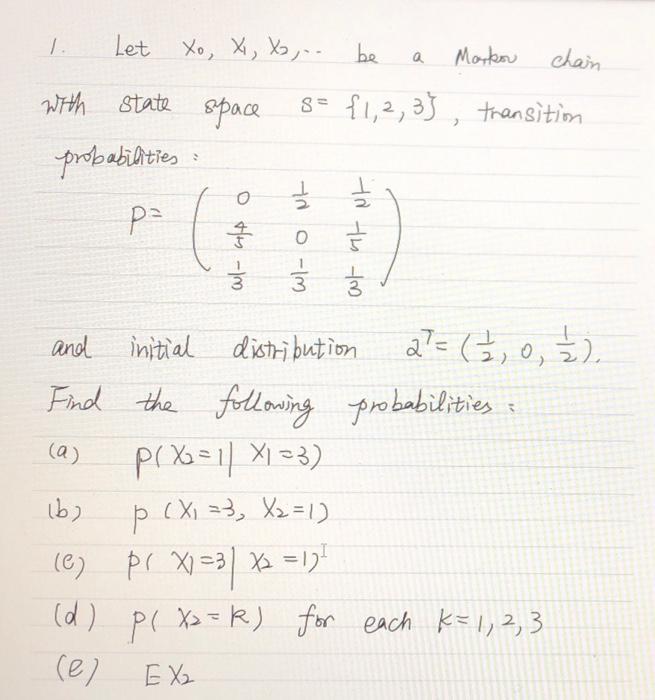 1. Let X₀, X₁, X₂, .. be a Markov chain
with state space S = {1, 2, 3}, transition
probabilities :
P= ( 0 1/2 1/2
4/5 0 1/5
1/3 1/3 1/3 )
and initial distribution 2ᵀ = (1/2, 0, 1/2).
Find the following probabilities :
(a) P( X₂ = 1 | X₁ = 3)
(b) P (X₁ = 3, X₂ = 1)
(c) P( X₁ = 3 | X₂ = 1)
(d) P( X₂ = k) for each k = 1, 2, 3
(e) E X₂